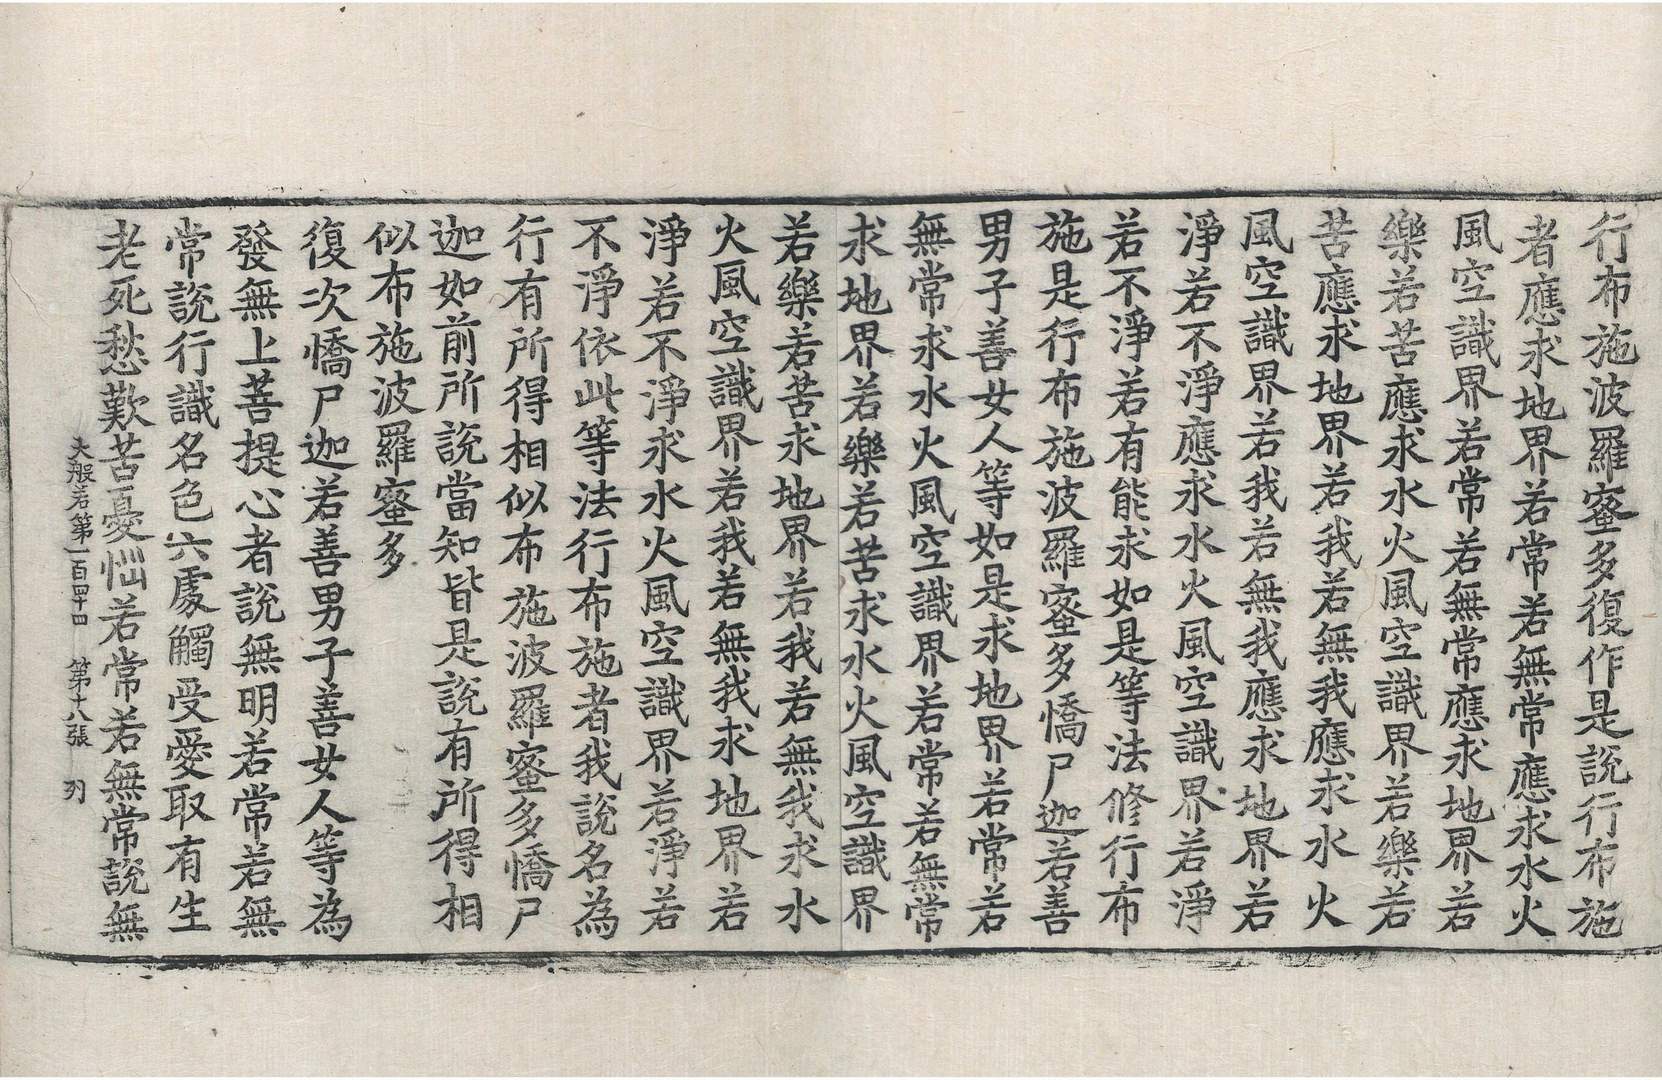 行布施波羅蜜多復作是說行布施
者應求地界若常若無常應求水火
風空識界若常若無常應求地界若
樂若苦應求水火風空識界若樂若
苦應求地界若我若無我應求水火
風空識界若我若無我應求地界若
淨若不淨應求水火風空識界若淨
若不淨若有能求如是等法修行布
施是行布施波羅蜜多憍尸迦若善
男子善女人等如是求地界若常若
無常求水火風空識界若常若無常
求地界若樂若苦求水火風空識界
若樂若苦求地界若我若無我求水
火風空識界若我若無我求地界若
淨若不淨求水火風空識界若淨若
不淨依此等法行布施者我說名為
行有所得相似布施波羅蜜多憍尸
迦如前所說當知皆是說有所得相
似布施波羅蜜多
復次憍尸迦若善男子善女人等為
發無上菩提心者說無明若常若無
常說行識名色六處觸受愛取有生
老死愁歎苦憂惱若常若無常說無
大般若第一百四十四 第十八張 列